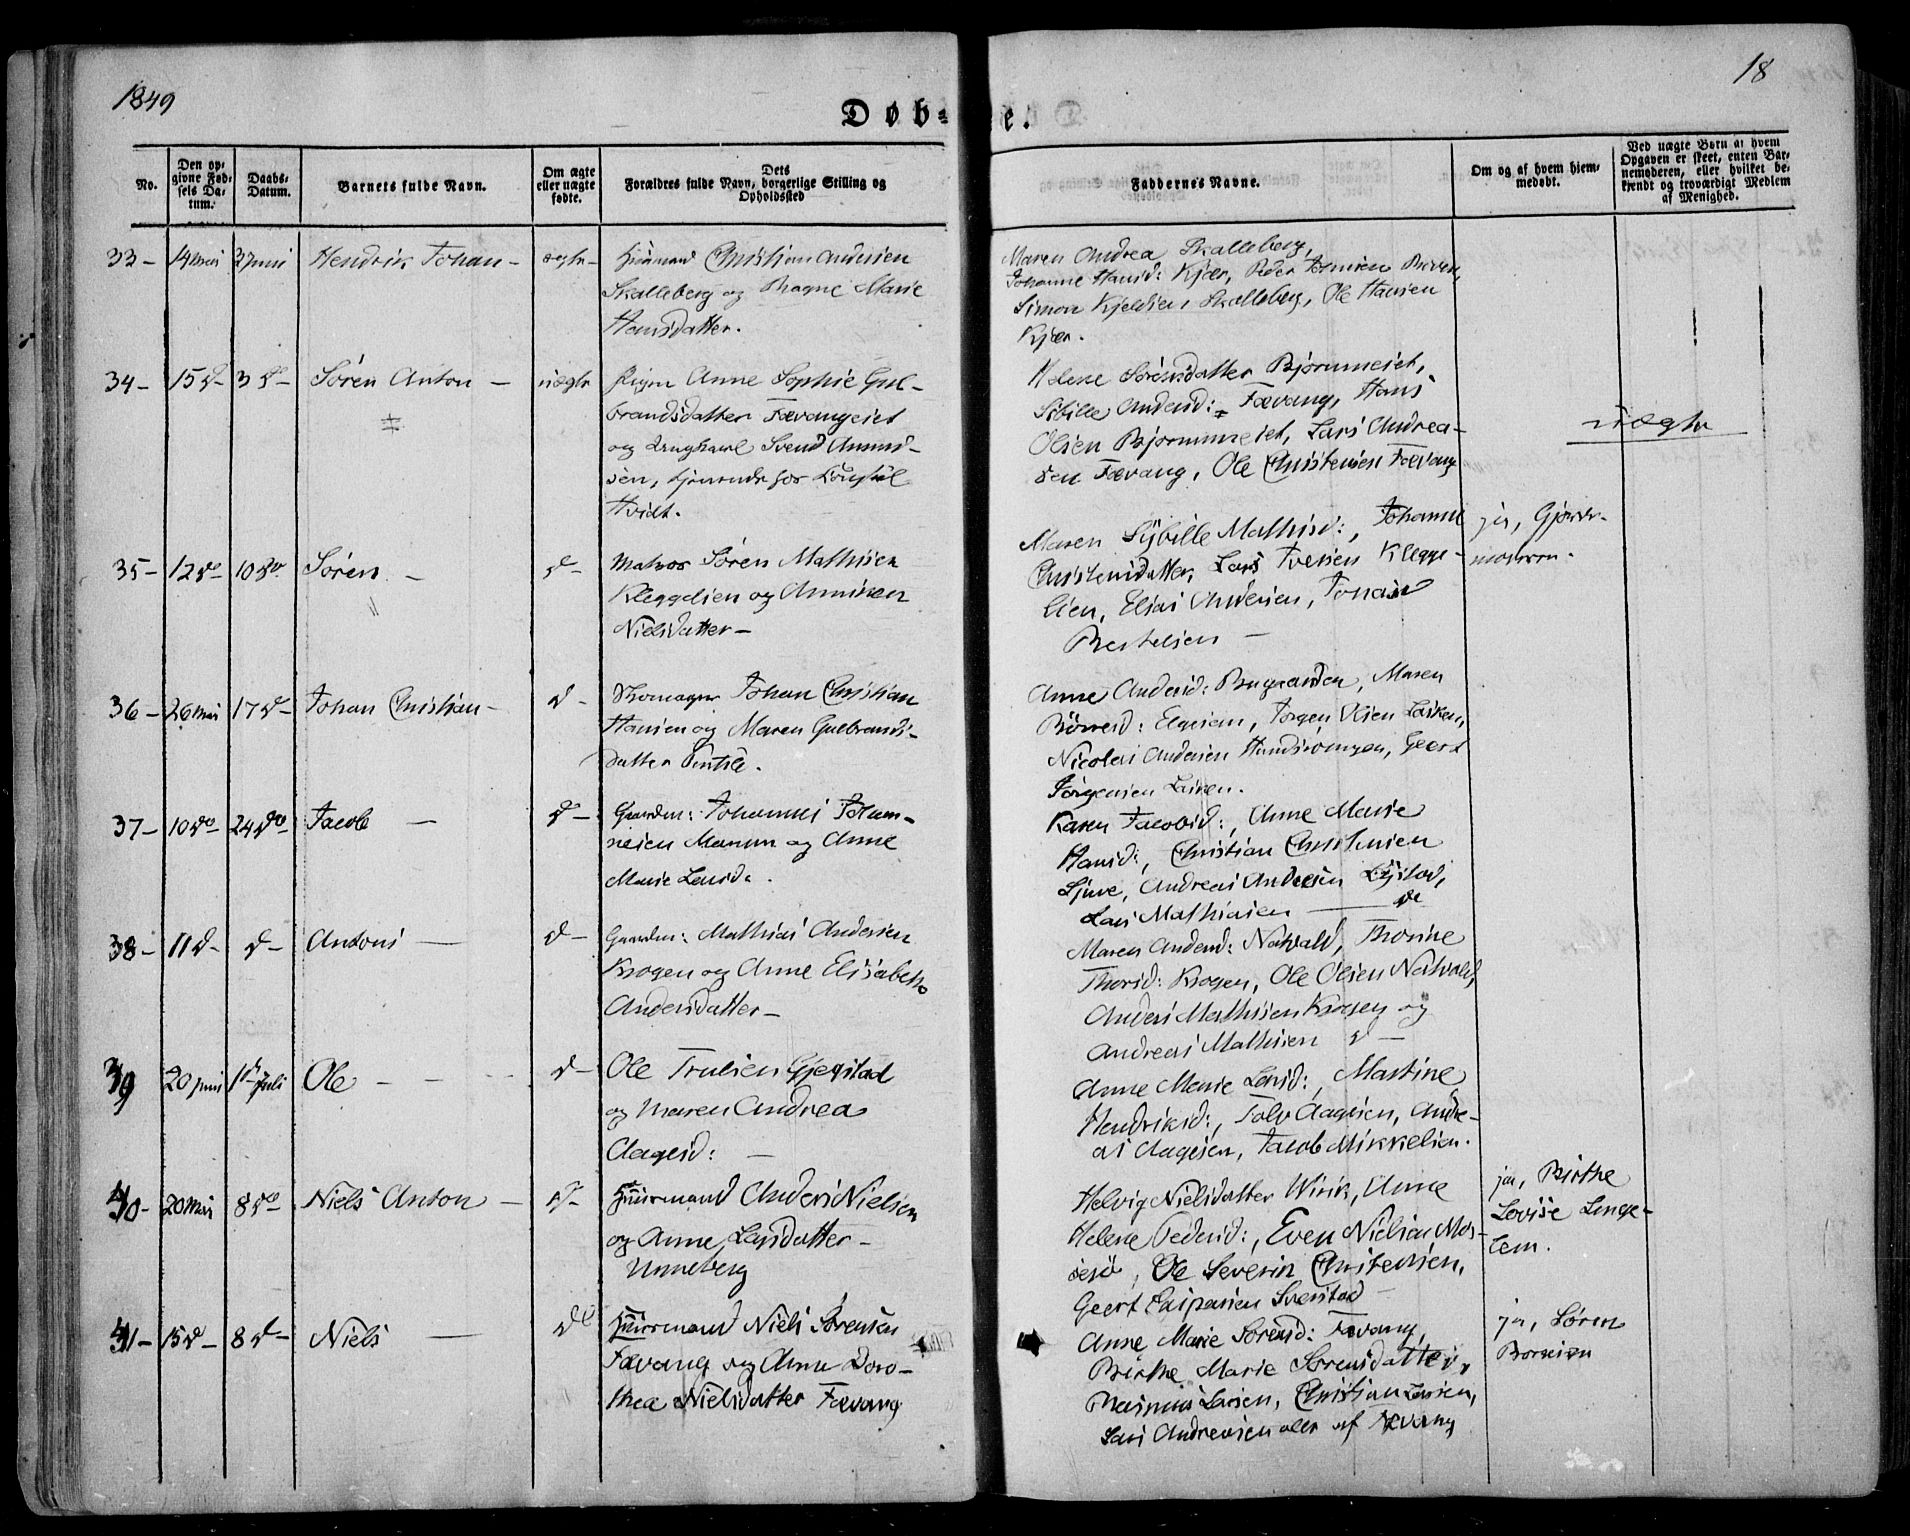 1849
18
Døb=
e.
No.
Den op=
givne Fød=
sels Da=
tum.
Daabs=
Datum.
Barnets fulde Navn.
Om ægte
eller uægte
fødte.
Dets
Forældres fulde Navn, borgerlige Stilling og
Opholdssted
Faddernes Navne.
Om og af hvem hjem=
medøbt.
Ved uægte Børn af hvem
Opgaven er skeet, enten Bar=
nemoderen, eller hvilket be=
kjendt og troværdigt Medlem
af Menighed.
33 - 14 Mai 3 Juni Hendrik Johan - ægte - Christian Andersen
Skalleberg og Ragne Marie
Hansdatter.
Maren Andrea Skalleberg,
Johanne Hansd: Kjær, Peder
Simon Kjeldsen, Skalleberg, Ole Hansen
Kjær.
34 - 15 d - 3 d - Søren Anton - uægte Pigen Anne Sophie Gul-
brandsdatter Fævangeiet
og Ungkarl Svend Amund-
sen, tjenende hos Konsul
Hvidt.
Helene Sørensdatter Bjørnumeiet,
Sibille Andersd: Fævang, Hans
Olsen Bjørnumeiet, Lars Andrea-
sen Fævang, Ole Christensen Fævang
uægte
35 - 12 do 10 do Søren - d - Matros Søren Mathisen
Kleggelien og Anniken
Nielsdatter -
Maren Sybille Mathisd:, Johanne
Christensdatter, Lars Iversen Klegge-
lien, Elias Andersen, Jonas
Bertelsen -
ja, Gjorde-
moderen.
36 - 26 Mai 17 d - Johan Christian - d - Skomager Johan Christian
Hansen og Maren Gulbrands-
datter
Anne Andersd: Maren
Børresd: Jørgen Olsen
Nicolai Andersen Geert
Jørgensen
37 - 10 do 24 do Jacob - d - Gaardm: Johannes Johan-
nesen Manum og Anne
Marie Larsd.
Karen Jacobsd:, Anne Marie
Hansd:, Christian Christensen
Andreas Andresen
Lars Mathiasen - do
38 - 11 d - d - Antons - d - Gaardm: Mathias Andersen
Krogen og Anne Elisabeth
Andersdatter -
Maren Andersd: Natvald, Thorine
Thorsd: Krogen, Ole Olsen Natvald,
Anders Mathisen Krogen og
Andreas Mathisen d -
39 20 Juni 1st Juli Ole - - - d - Ole Trulsen Gjegstad
og Maren Andrea
Aagesd: -
Anne Marie Larsd:, Martine
Hendriksd:, Tolv Aagesen, Andre-
as Aagesen, Jacob Mikkelsen.
40 - 20 Mai 8 do Niels Anton - d - Huusmand Anders Nielsen
og Anne Larsdatter -
Unneberg
Helvig Nielsdatter Virik, Anne
Helene Pedersd:, Even Nielsen Mos-
sesø, Ole Severin Christensen,
Geert Caspersen -
ja, Birthe
Lovise Linge-
lem.
41 - 15 d - 8 d - Niels - do Huusmand Niels Sørensen
Fævang og Anne Doro-
thea Nielsdatter Fævang
Anne Marie Sørensd: Fævang,
Birthe Marie Sørensdatter,
Rasmus Larsen, Christian Larsen,
Lars Andreasen alle af Fævang
ja, Søren
Børresen